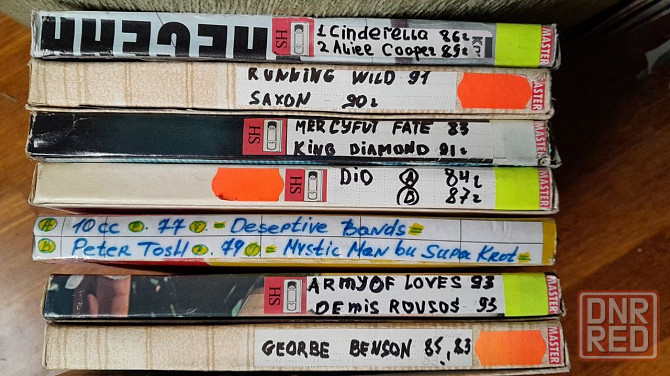 МЕГЕНА HS 1 Cinderella 86г MASTER
2 Alice Cooper 89г
RUNNING WILD 91 MASTER
SAXON 90г
HS MERCYFUL FATE 83 MASTER
KING DIAMOND 91г
HS DiO A 84г MASTER
B 87г
A 10cc 77 = Deseptive Bands =
B Peter Tosh . 79 = Mystic Man bu Supa Krot =
HS ARMY OF LOVES 93 MASTER
DEMIS ROUSOS 93
GEORBE BENSON 85, 83 MASTER
DNR
RED